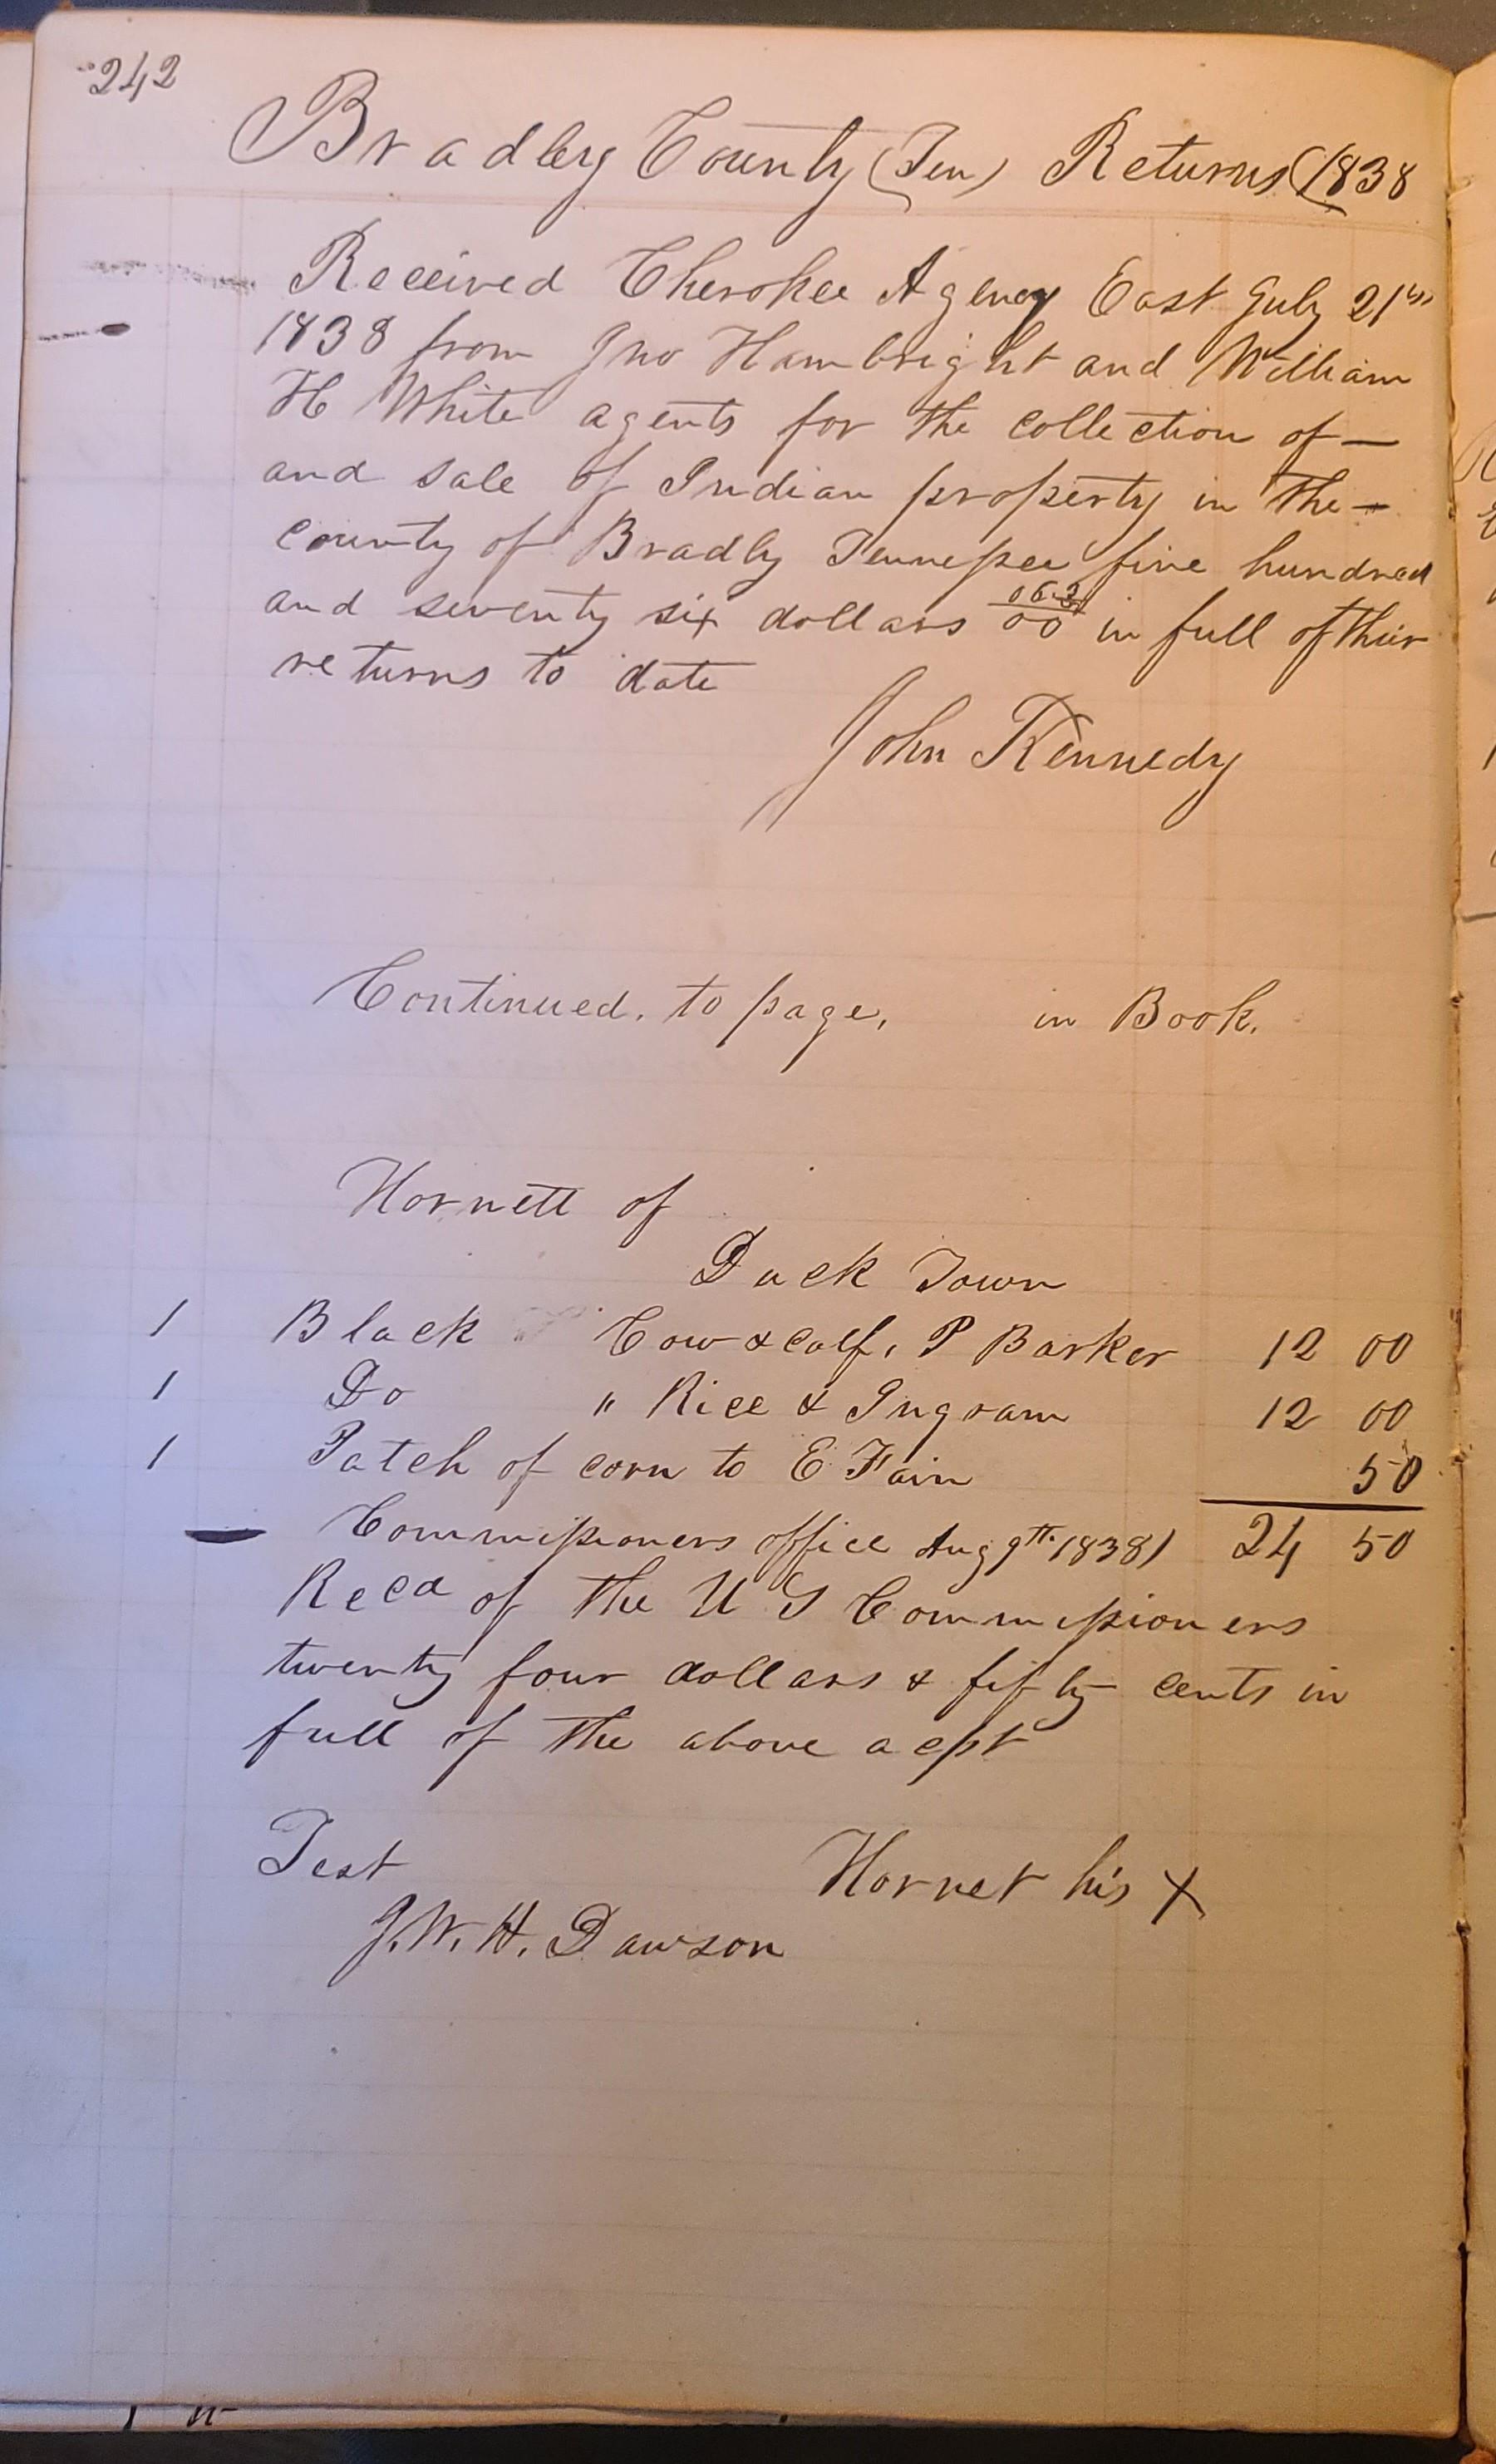 242
Bradley County (Ten) Returns (1838
Received Cherokee Agency East July 21st
1838 from Jno Hambright and William
H White agents for the collection of —
and sale of Indian property in the —
County of Bradly Tennessee five hundred
and seventy six dollars in full of their
returns to date
John Kennedy
Continued. to page, in Book.
Hornett of
Duck Town
1 Black Cow & calf, P Barker 12 00
1 Do " Rice & Ingram 12 00
1 Patch of corn to E Fain 50
— Commissioners office Aug 9th 1838) 24 50
Recd of the U S Commissioners
twenty four dollars & fifty cents in
full of the above acpt
Test Hornet his X
J. W. H. Dawson